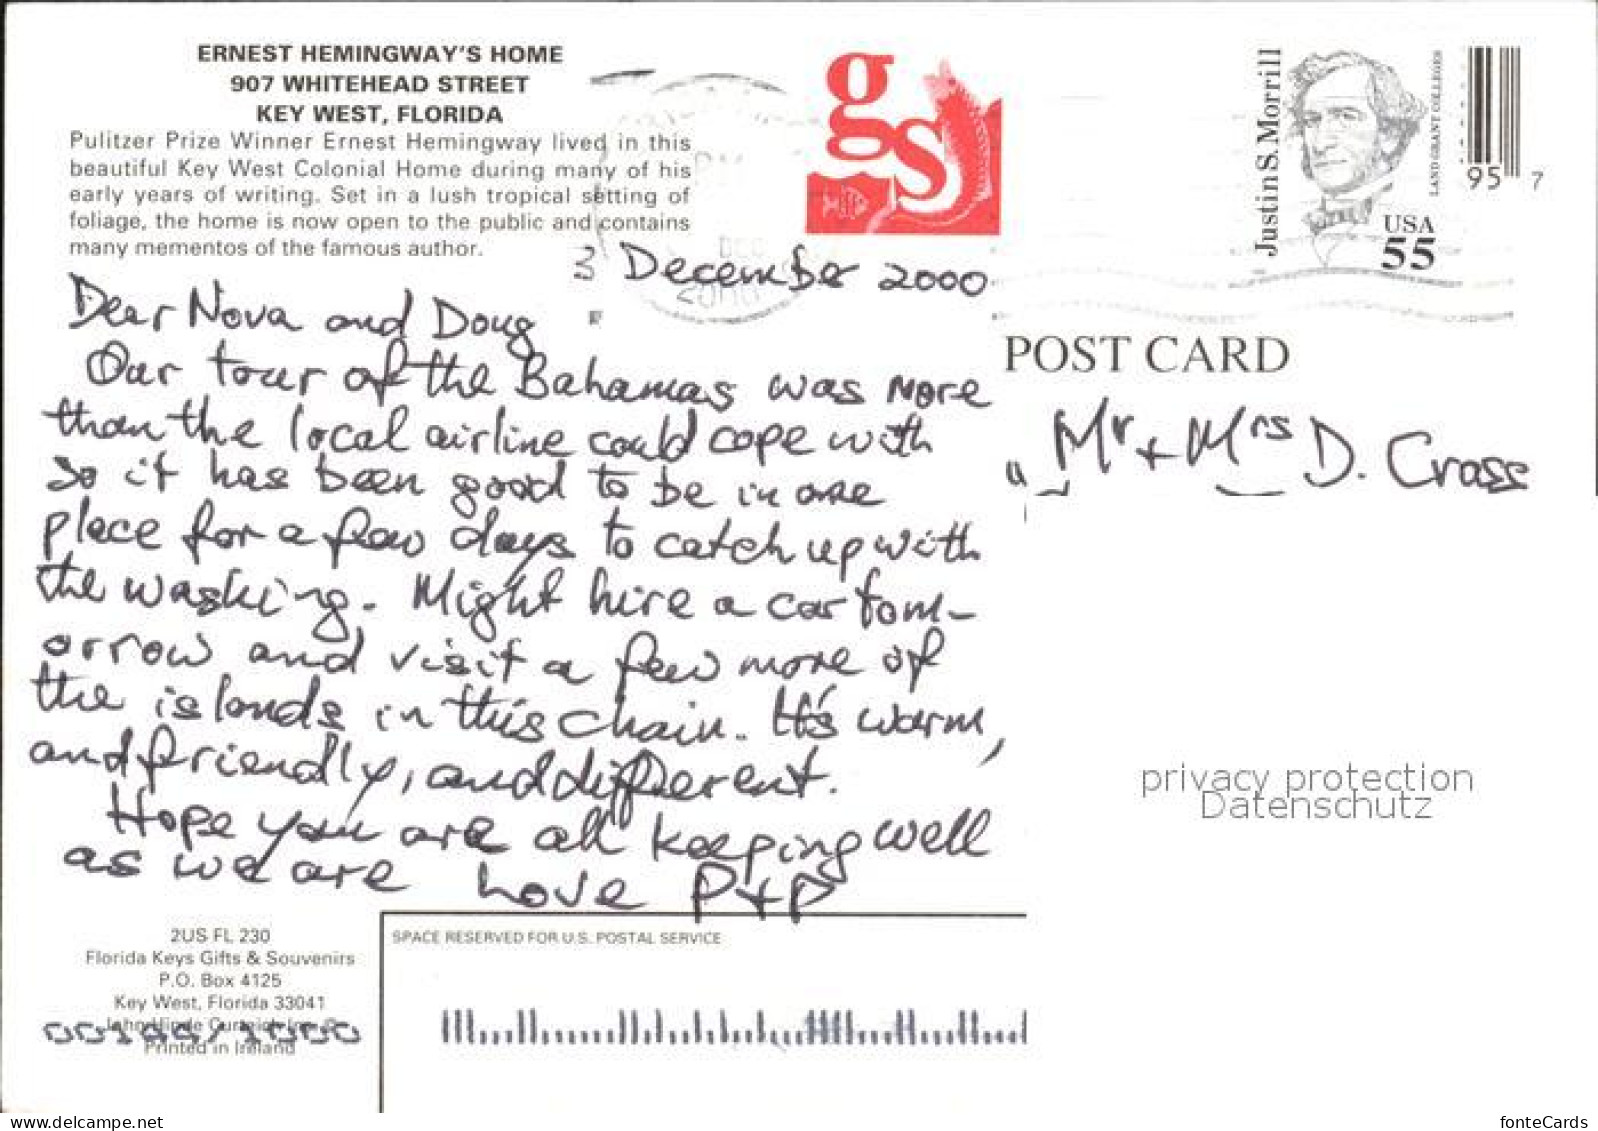 ERNEST HEMINGWAY'S HOME
907 WHITEHEAD STREET
KEY WEST, FLORIDA
Pulitzer Prize Winner Ernest Hemingway lived in this
beautiful Key West Colonial Home during many of his
early years of writing. Set in a lush tropical setting of
foliage, the home is now open to the public and contains
many mementos of the famous author.
gs
Justin S. Morrill
LAND GRANT COLLEGES
USA
55
95 7
3 December 2000
DEC
2000
Dear Nova and Doug
Our tour of the Bahamas was more
than the local airline could cope with
so it has been good to be in one
place for a few days to catch up with
the washing. Might hire a car tom-
orrow and visit a few more of
the islands in this chain. It's warm,
and friendly, and different.
Hope you are all keeping well
as we are Love P+P
POST CARD
Mr + Mrs D. Cross
privacy protection
Datenschutz
2US FL 230
Florida Keys Gifts & Souvenirs
P.O. Box 4125
Key West, Florida 33041
John Hinde Curteich Inc. ©
Printed in Ireland
SPACE RESERVED FOR U.S. POSTAL SERVICE
www.delcampe.net
fonteCards